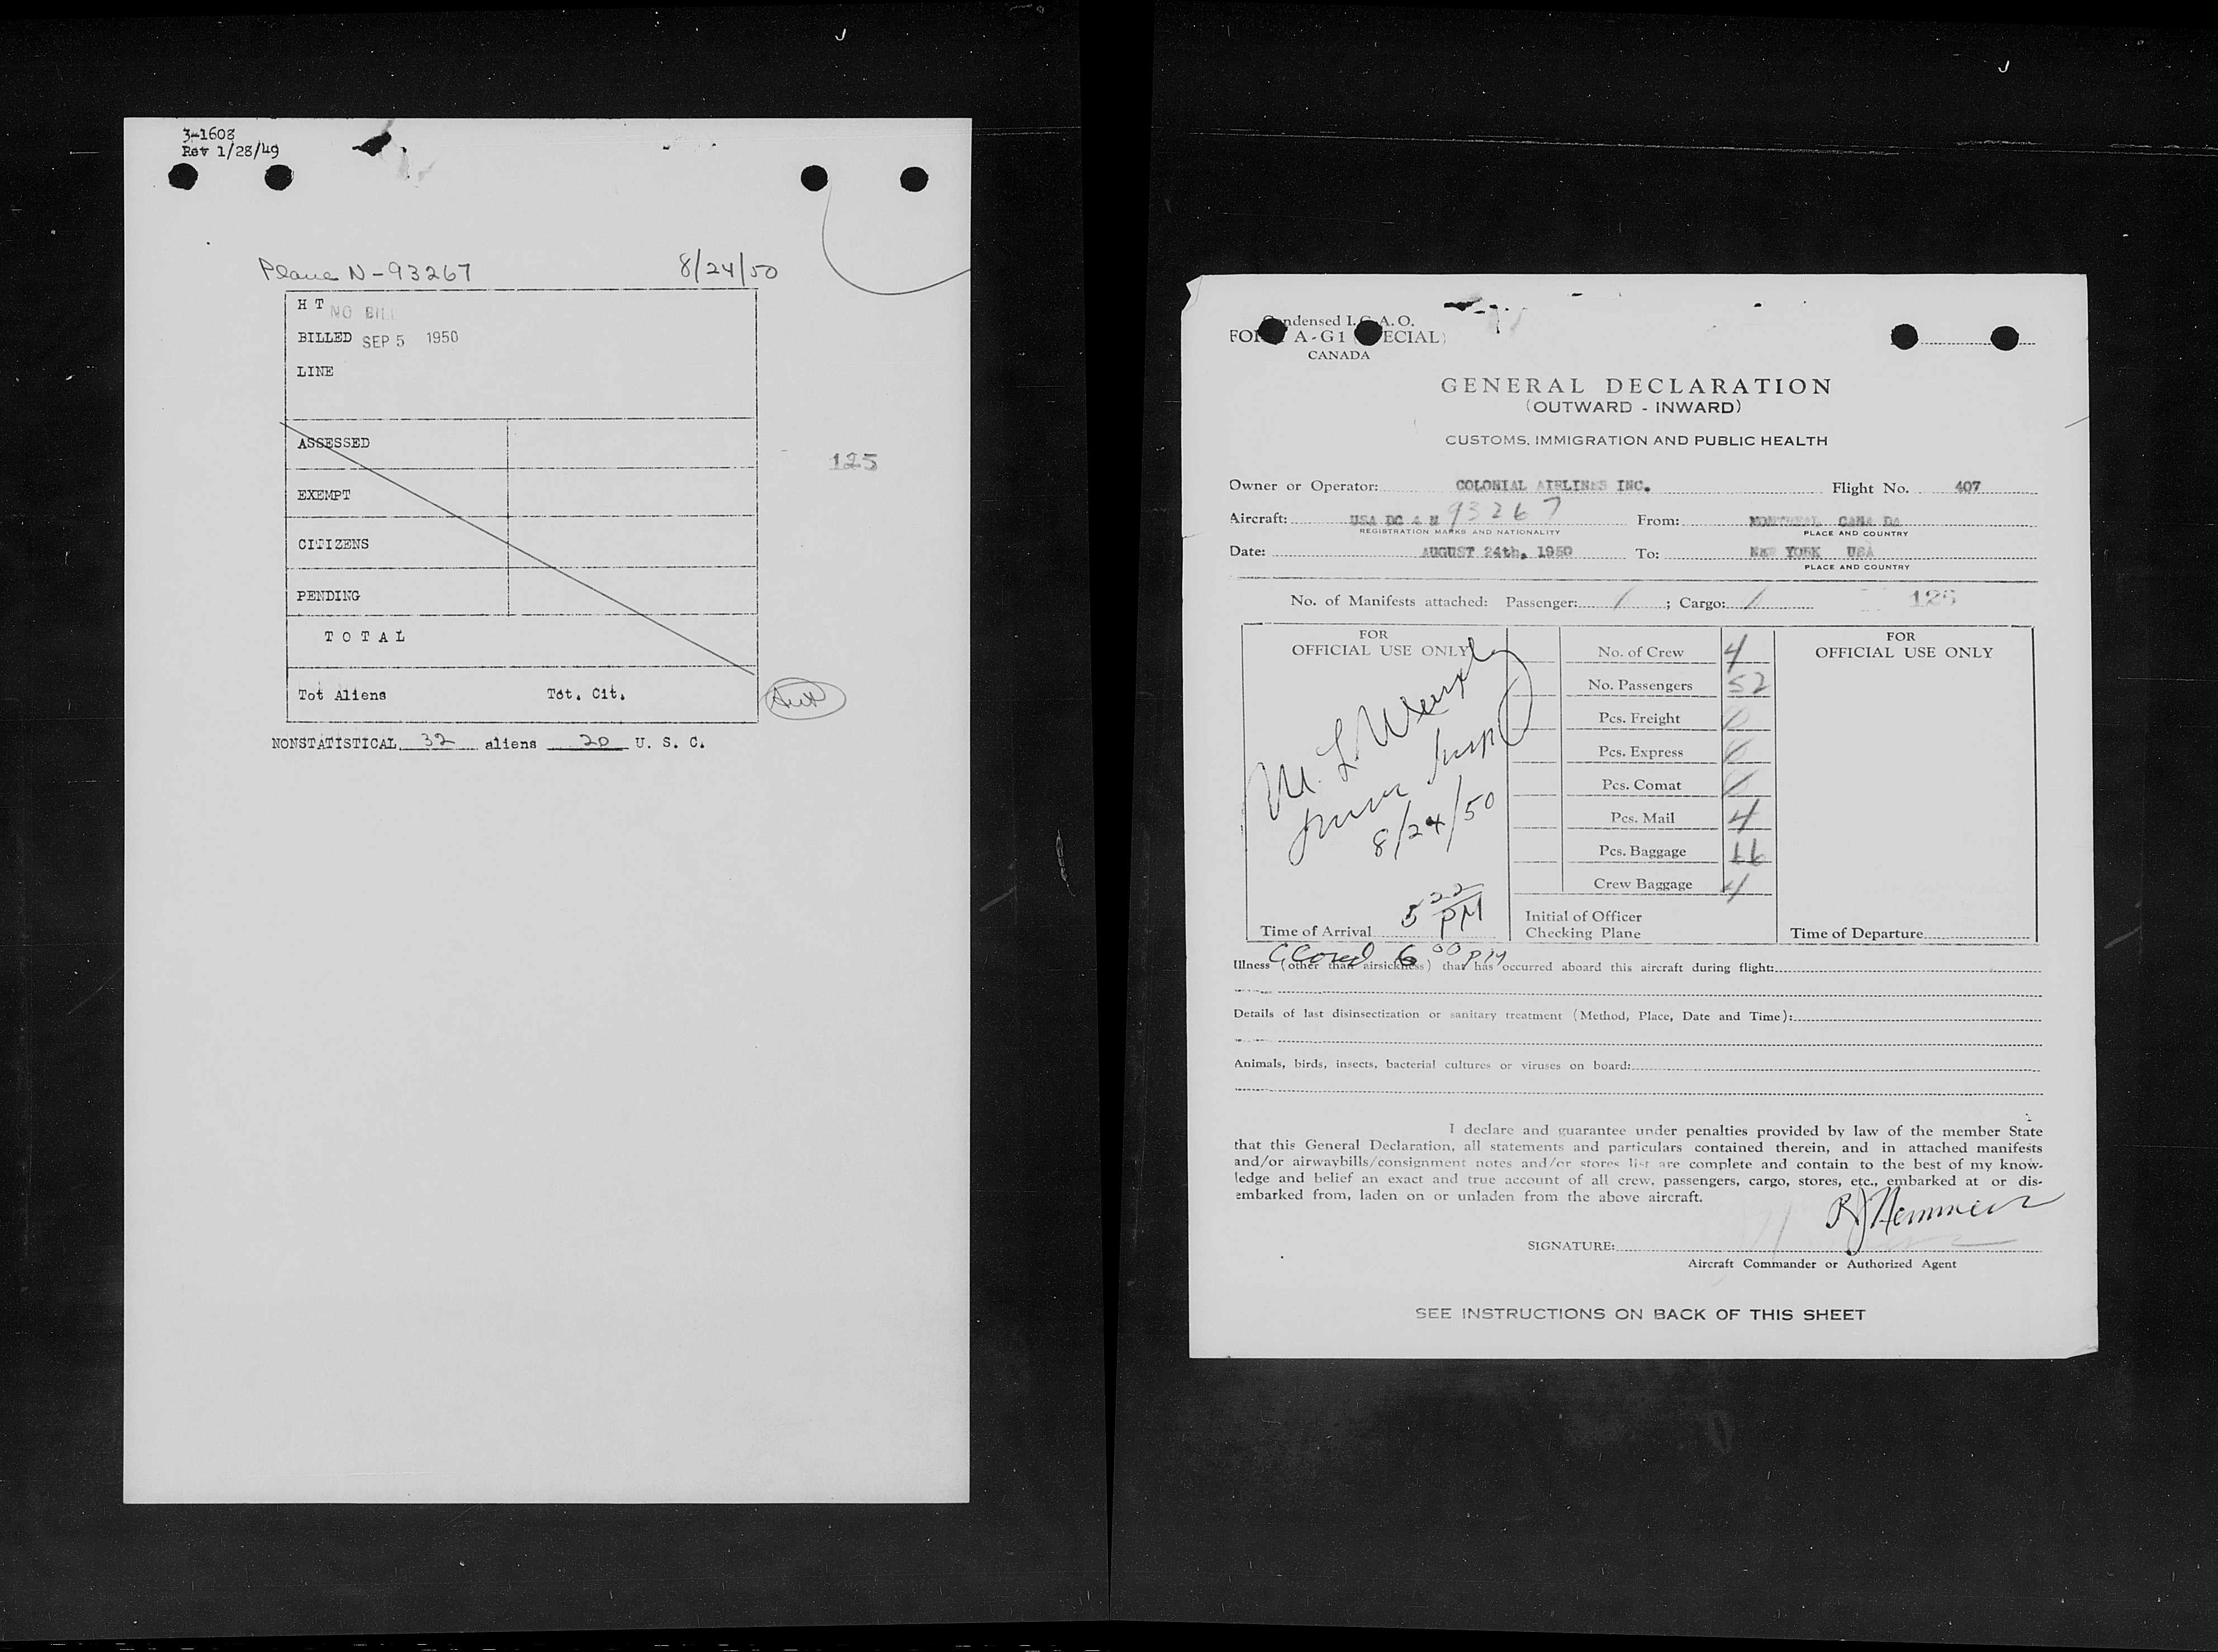 3-1608
Rev 1/28/49
Plane N-93267 8/24/50
H T NO BILL
BILLED SEP 5 1950
LINE
ASSESSED
125
EXEMPT
CITIZENS
PENDING
T O T A L
Tot Aliens Tot. Cit.
NONSTATISTICAL 32 aliens 20 U. S. C.
Condensed I.C.A.O.
FORM A-G1 (SPECIAL)
CANADA
GENERAL DECLARATION
(OUTWARD - INWARD)
CUSTOMS, IMMIGRATION AND PUBLIC HEALTH
Owner or Operator: COLONIAL AIRLINES INC. Flight No. 407
Aircraft: USA DC 4 N 93267 From: MONTREAL CANA DA
REGISTRATION MARKS AND NATIONALITY PLACE AND COUNTRY
Date: AUGUST 24th, 1950 To: NEW YORK USA
PLACE AND COUNTRY
No. of Manifests attached: Passenger: 1 ; Cargo: 1 125
FOR
OFFICIAL USE ONLY
No. of Crew 4
No. Passengers 52
Pcs. Freight
Pcs. Express
Pcs. Comat
Pcs. Mail 4
Pcs. Baggage
Crew Baggage 4
M. L.
Insp
8/24/50
Time of Arrival 5 22 PM
Initial of Officer
Checking Plane
FOR
OFFICIAL USE ONLY
Time of Departure
Closed 6 00 PM
Illness (other than airsickness) that has occurred aboard this aircraft during flight:
Details of last disinsectization or sanitary treatment (Method, Place, Date and Time):
Animals, birds, insects, bacterial cultures or viruses on board:
I declare and guarantee under penalties provided by law of the member State
that this General Declaration, all statements and particulars contained therein, and in attached manifests
and/or airwaybills/consignment notes and/or stores list are complete and contain to the best of my know-
ledge and belief an exact and true account of all crew, passengers, cargo, stores, etc., embarked at or dis-
embarked from, laden on or unladen from the above aircraft.
SIGNATURE:
Aircraft Commander or Authorized Agent
SEE INSTRUCTIONS ON BACK OF THIS SHEET